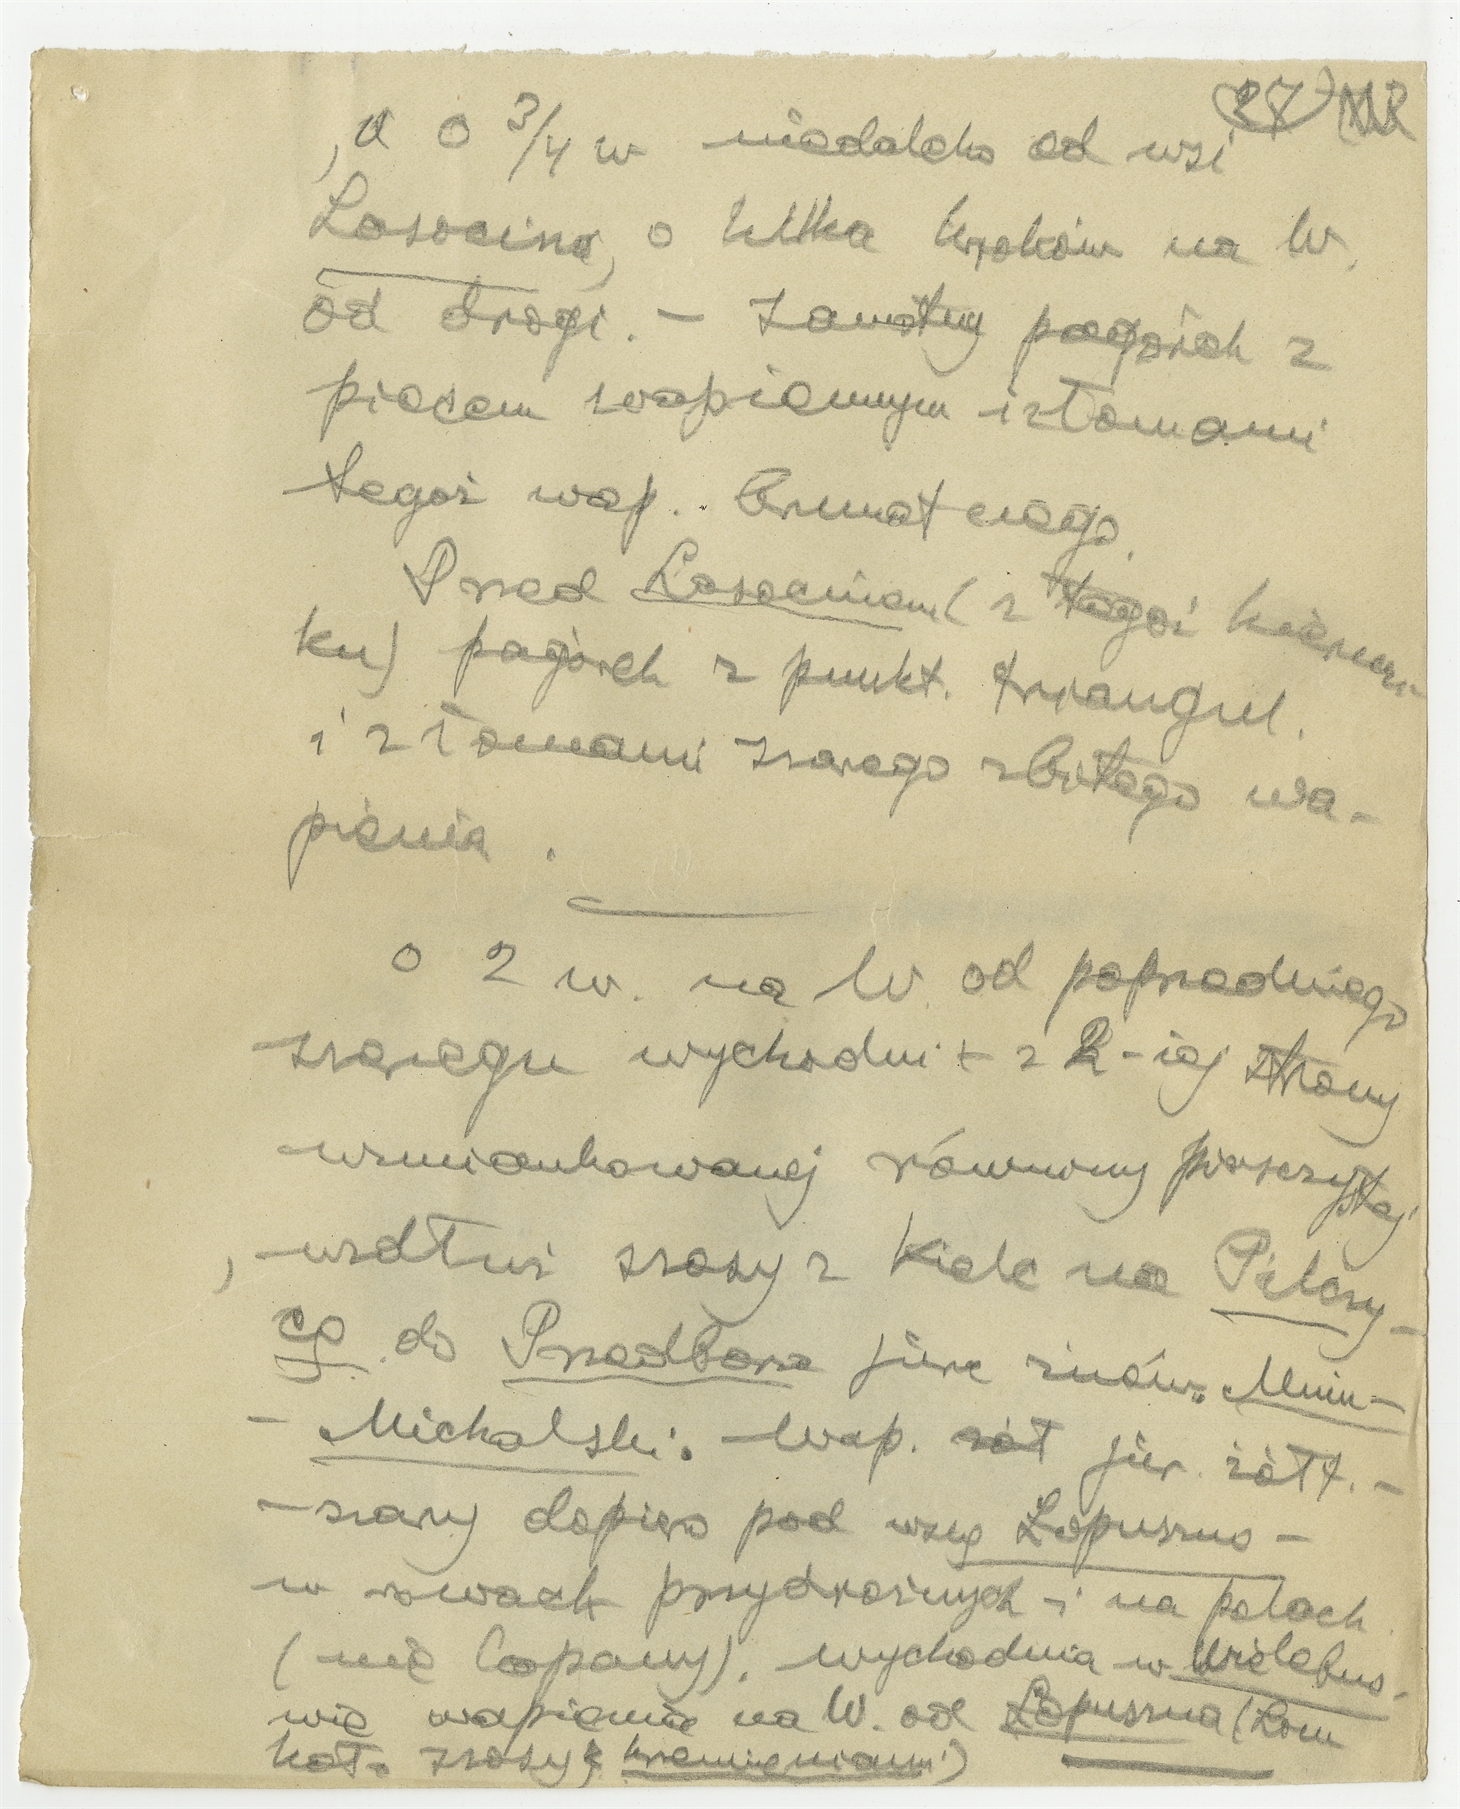 27
, a o 3/4 w niedaleko od wsi
Łosocina, o kilka kroków na W.
od drogi. – Samotny pagórek z
piecem wapiennym i złomami
tegoż wap. brunatnego.
Przed Łosocinem (z tegoż kierun-
ku) pagórek z punkt. tryangul.
i złomami szarego zbitego wa-
pienia.
o 2 w. na W. od poprzedniego
szeregu wychodni + z R-iej strony
wzmiankowanej równiny piaszczystej
, wzdłuż szosy z Kielc na Piłczy-
cę do Przedborza jure znów. Mnin-
- Michalski. Wap. jur. żółt. -
- szary dopiero pod wsią Łopuszno -
w rowach przydrożnych i na polach
(nie kopany). wychodnia w Wielebno-
wie wapienie na W. od Łopuszna (Łom
koło szosy z krzemieniami)